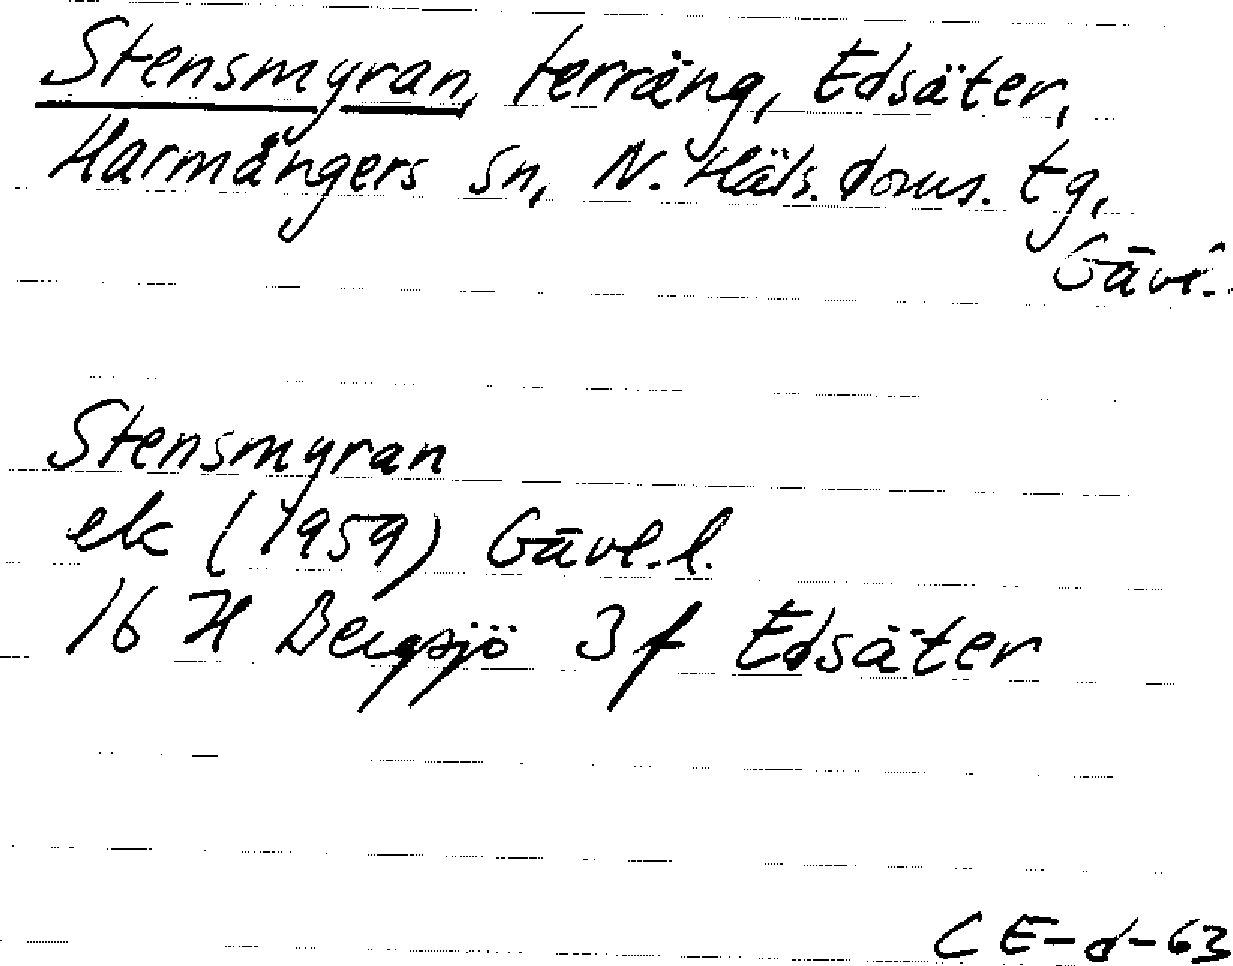 Stensmyran, terräng, Edsäter,
Harmångers sn, N. Häls. doms. tg,
Gävl.
Stensmyran
ek (1959) Gävl. l.
16 H Bergsjö 3 f Edsäter
CE-d-63